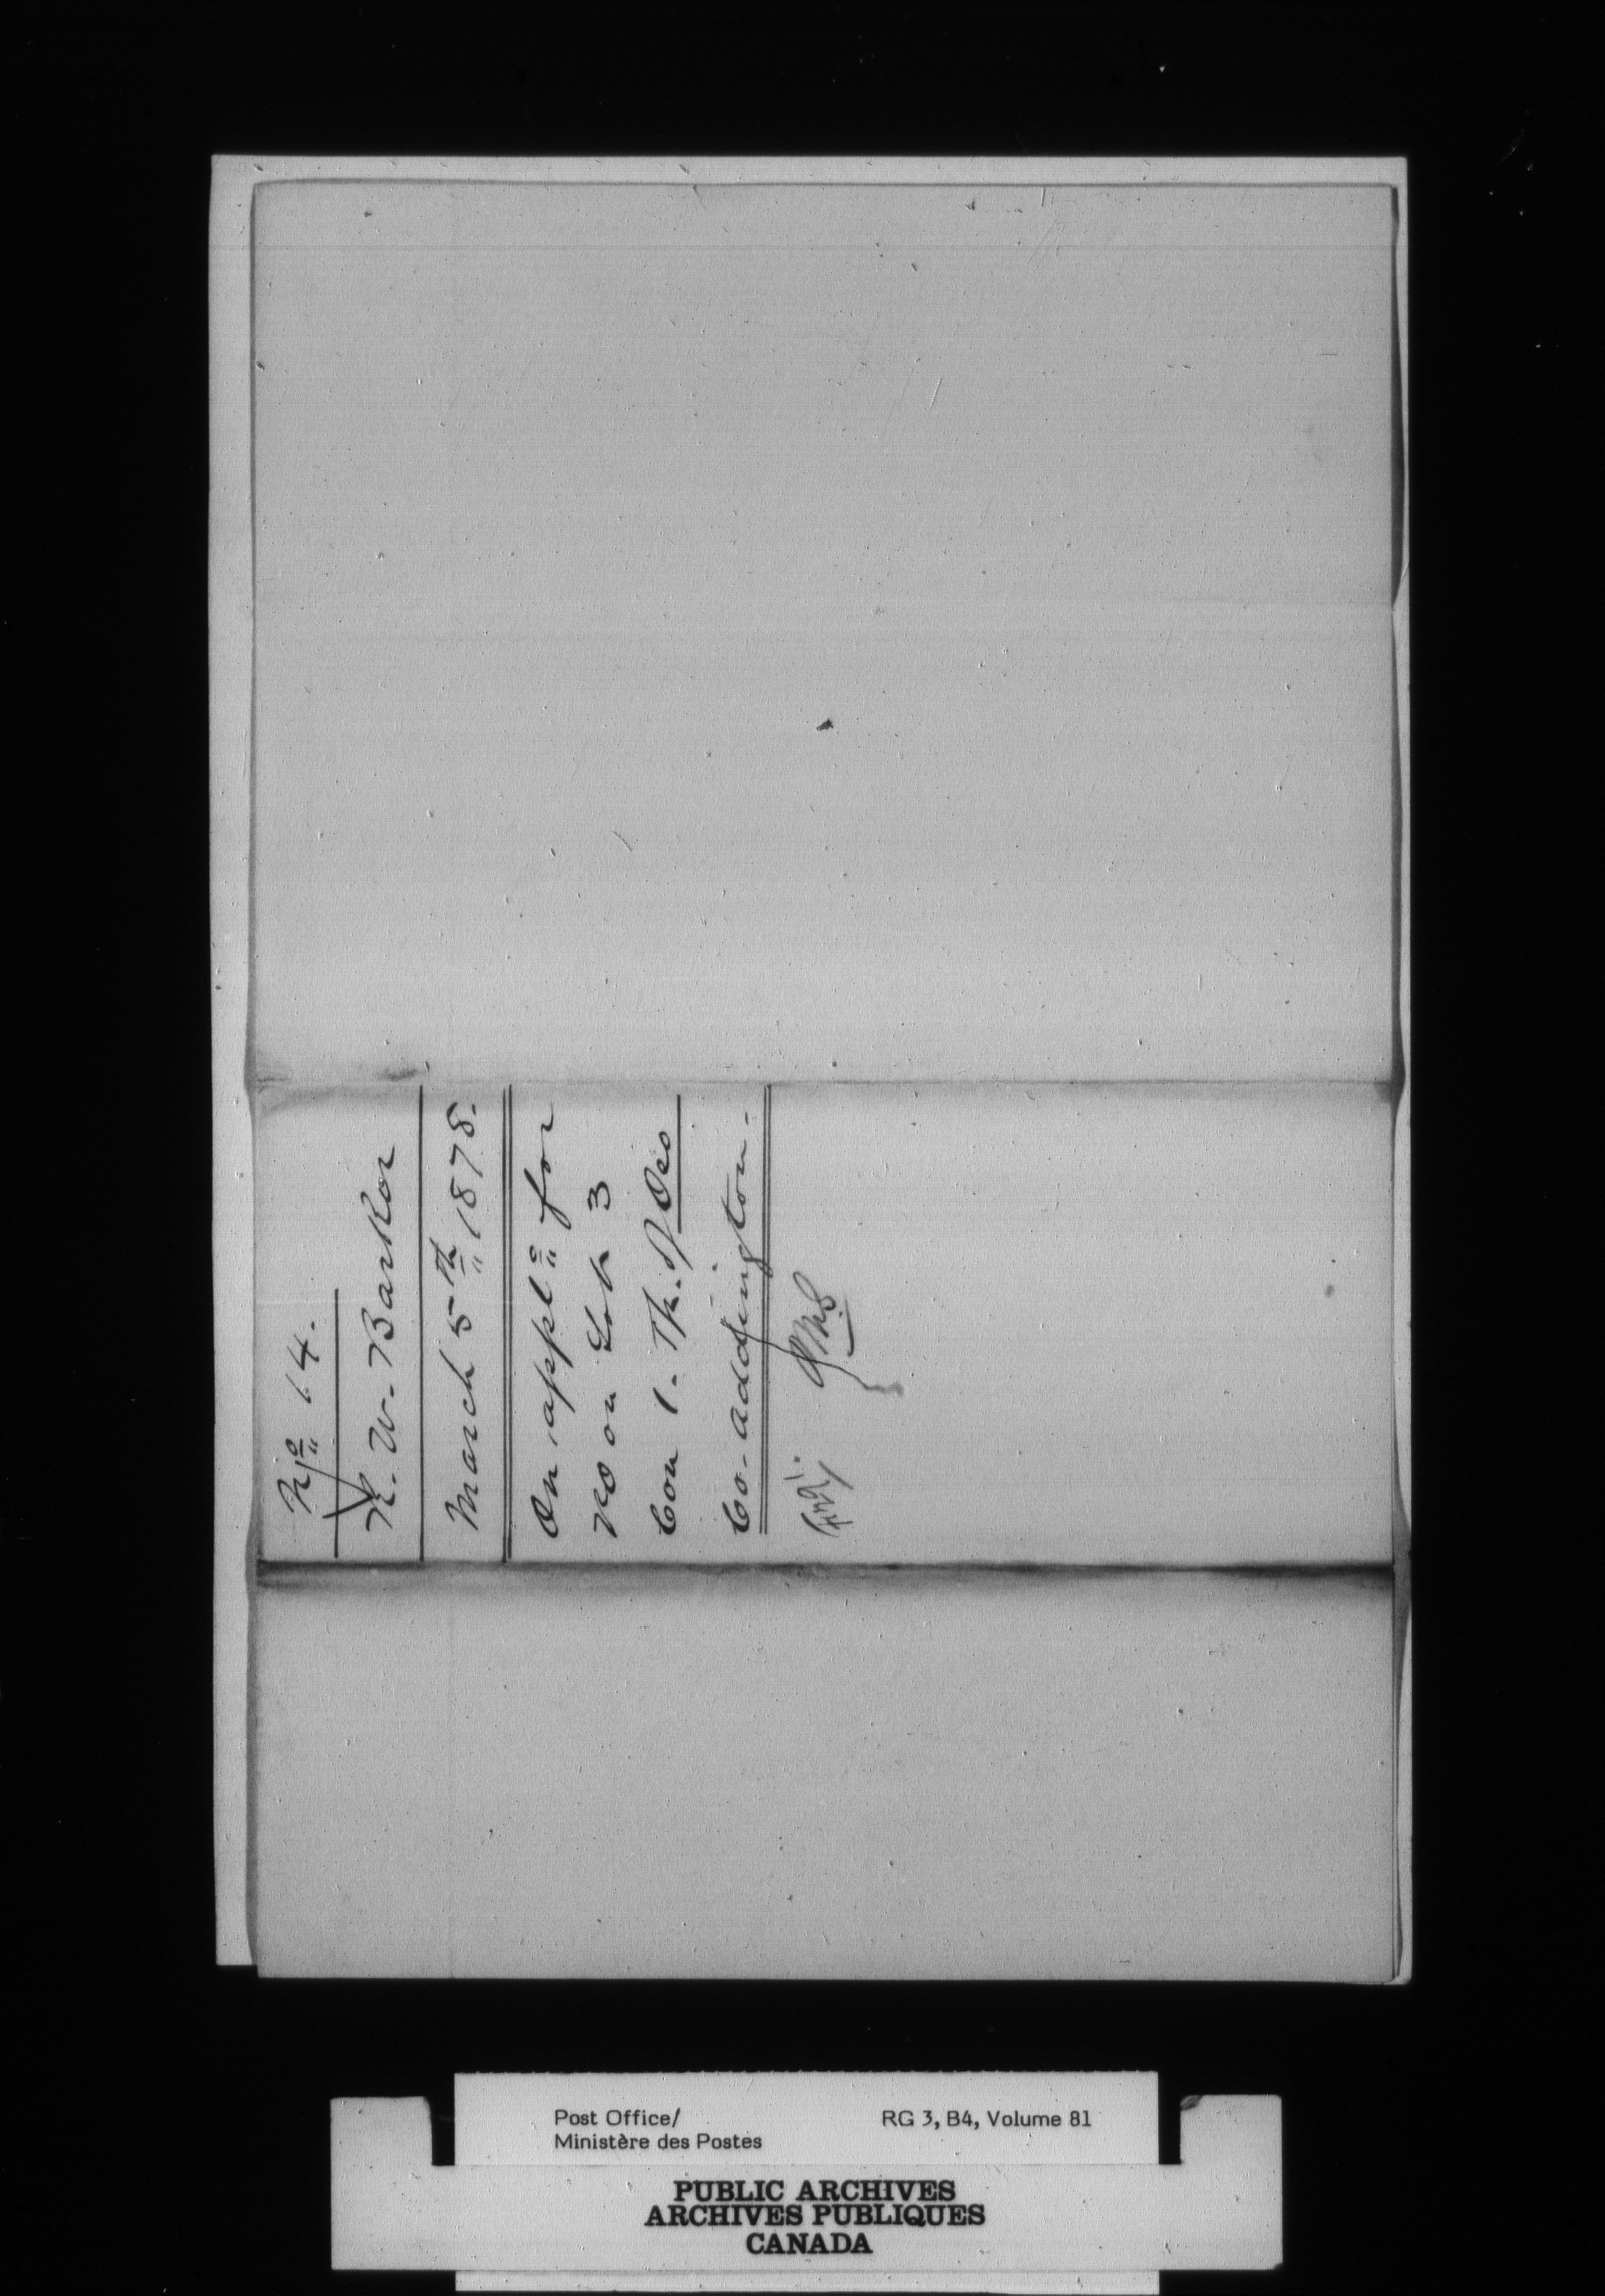 No 14.
R. W. Barker
March 5th 1878.
On appln for
PO on Lot 3
Con 1. Tp. of Oso
Co. Addington.
Post Office/
Ministère des Postes
RG 3, B4, Volume 81
PUBLIC ARCHIVES
ARCHIVES PUBLIQUES
CANADA